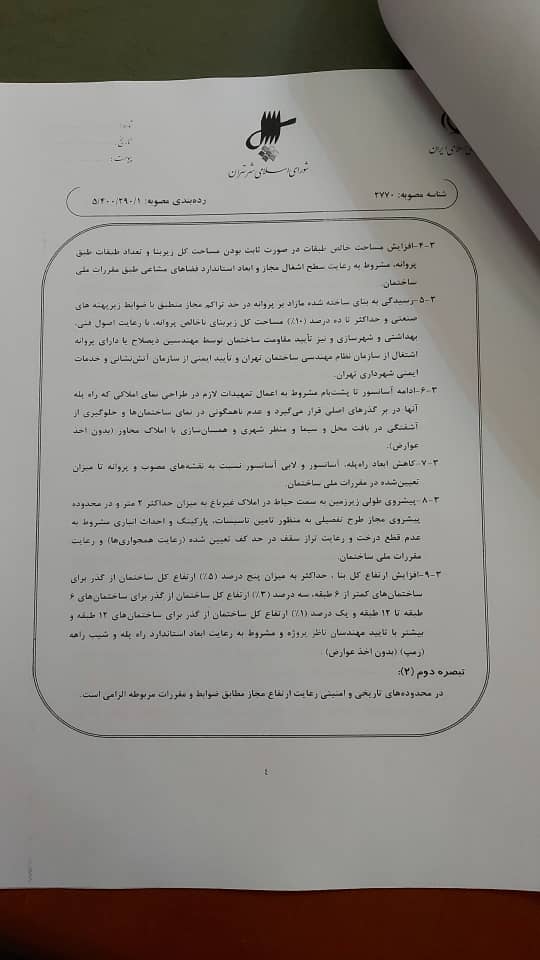 شماره:
تاریخ:
پیوست:
شورای اسلامی شهر تهران
شناسه مصوبه: ۲۷۷۰
رده‌بندی مصوبه: ۵/۴۰۰/۲۹۰/۱
۳-۴-افزایش مساحت خالص طبقات در صورت ثابت بودن مساحت کل زیربنا و تعداد طبقات طبق
پروانه، مشروط به رعایت سطح اشغال مجاز و ابعاد استاندارد فضاهای مشاعی طبق مقررات ملی
ساختمان.
۳-۵-رسیدگی به بنای ساخته شده مازاد بر پروانه در حد تراکم مجاز منطبق با ضوابط زیرپهنه های
صنعتی و حداکثر تا ده درصد (۱۰٪) مساحت کل زیربنای ناخالص پروانه، با رعایت اصول فنی،
بهداشتی و شهرسازی و نیز تأیید مقاومت ساختمان توسط مهندسین ذیصلاح یا دارای پروانه
اشتغال از سازمان نظام مهندسی ساختمان تهران و تأیید ایمنی از سازمان آتش‌نشانی و خدمات
ایمنی شهرداری تهران.
۳-۶-ادامه آسانسور تا پشت‌بام مشروط به اعمال تمهیدات لازم در طراحی نمای املاکی که راه پله
آنها در بر گذرهای اصلی قرار می‌گیرد و عدم ناهمگونی در نمای ساختمان‌ها و جلوگیری از
آشفتگی در بافت محل و سیما و منظر شهری و همسان‌سازی با املاک مجاور (بدون اخذ
عوارض).
۳-۷-کاهش ابعاد راه‌پله، آسانسور و لابی آسانسور نسبت به نقشه‌های مصوب و پروانه تا میزان
تعیین‌شده در مقررات ملی ساختمان.
۳-۸-پیشروی طولی زیرزمین به سمت حیاط در املاک غیرباغ به میزان حداکثر ۲ متر و در محدوده
پیشروی مجاز طرح تفصیلی به منظور تامین تاسیسات، پارکینگ و احداث انباری مشروط به
عدم قطع درخت و رعایت تراز سقف در حد کف تعیین شده (رعایت همجواری‌ها) و رعایت
مقررات ملی ساختمان.
۳-۹-افزایش ارتفاع کل بنا ، حداکثر به میزان پنج درصد (۵٪) ارتفاع کل ساختمان از گذر برای
ساختمان‌های کمتر از ۶ طبقه، سه درصد (۳٪) ارتفاع کل ساختمان از گذر برای ساختمان‌های ۶
طبقه تا ۱۲ طبقه و یک درصد (۱٪) ارتفاع کل ساختمان از گذر برای ساختمان‌های ۱۲ طبقه و
بیشتر با تایید مهندسان ناظر پروژه و مشروط به رعایت ابعاد استاندارد راه پله و شیب راهه
(رمپ) (بدون اخذ عوارض).
تبصره دوم (۲):
در محدوده‌های تاریخی و امنیتی رعایت ارتفاع مجاز مطابق ضوابط و مقررات مربوطه الزامی است.
۴